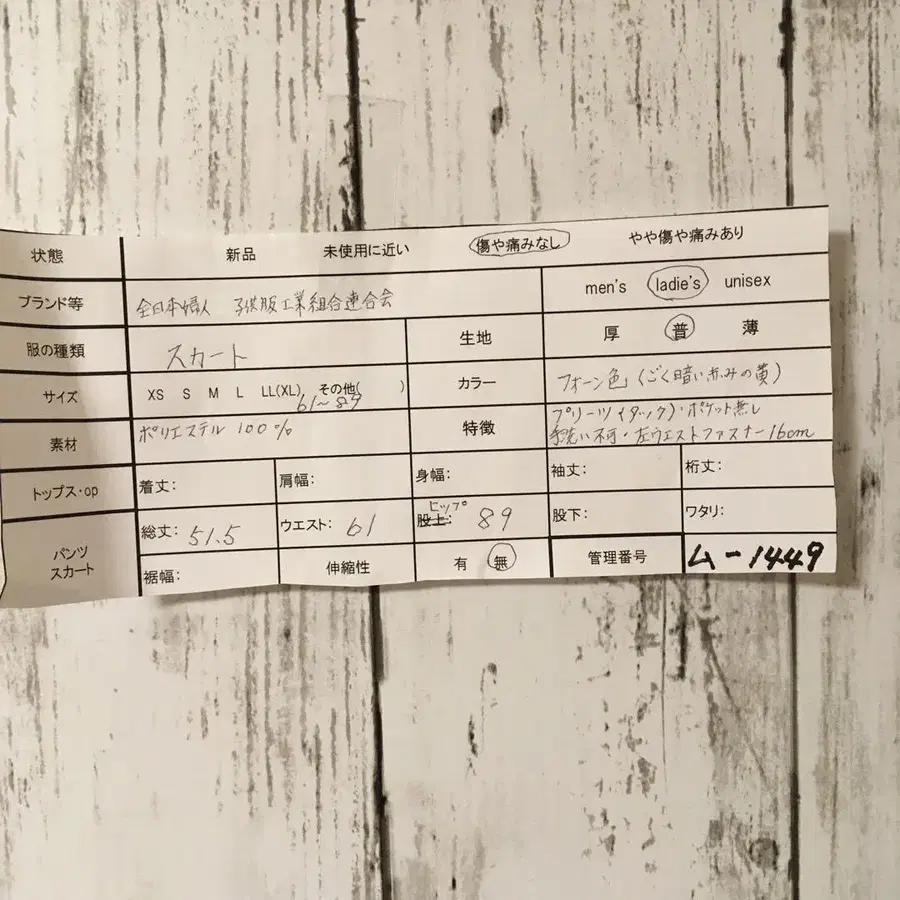 状態 新品 未使用に近い 傷や痛みなし やや傷や痛みあり
ブランド等 全日本婦人 子供服工業組合連合会 men's ladie's unisex
服の種類 スカート 生地 厚 普 薄
サイズ XS S M L LL(XL) その他( ) 61~89 カラー フォーン色(ごく暗い赤みの黄)
素材 ポリエステル 100% 特徴 プリーツ(タック)・ポケット無し
手洗い不可・左ウエストファスナー16cm
トップス・op 着丈: 肩幅: 身幅: 袖丈: 裄丈:
パンツ スカート 総丈: 51.5 ウエスト: 61 股上: ヒップ 89 股下: ワタリ:
裾幅: 伸縮性 有 無 管理番号 ム-1449